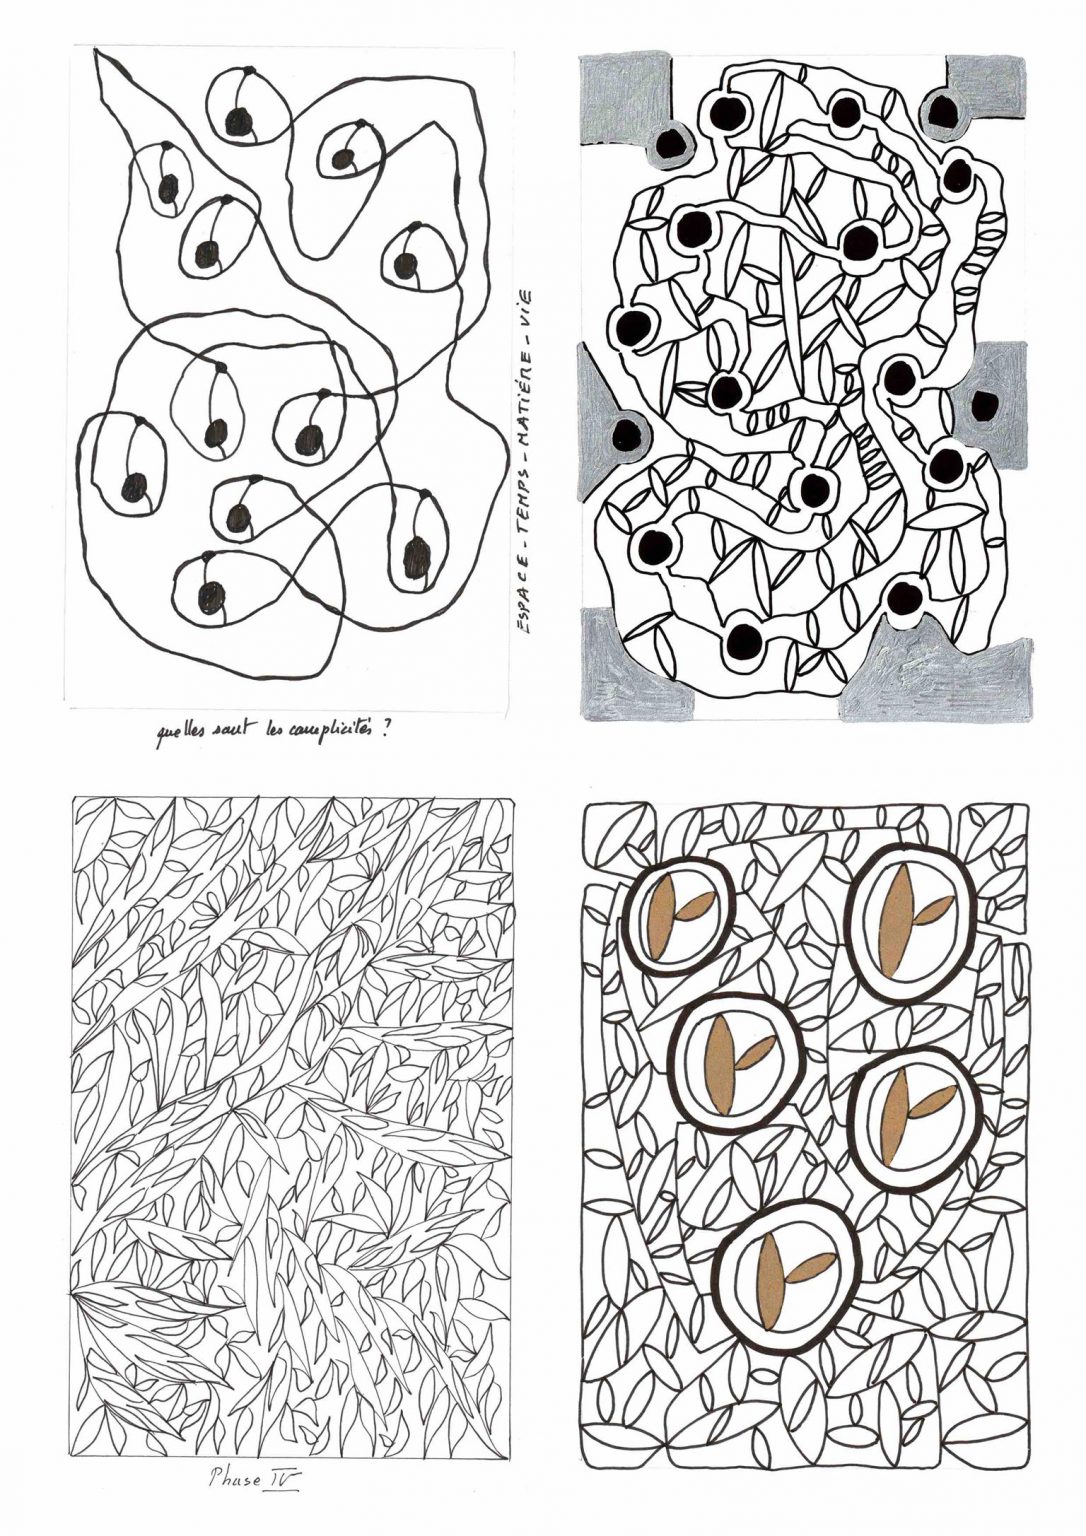 ESPACE - TEMPS - MATIÉRE - VIE
quelles sont les complicités ?
Phase IV